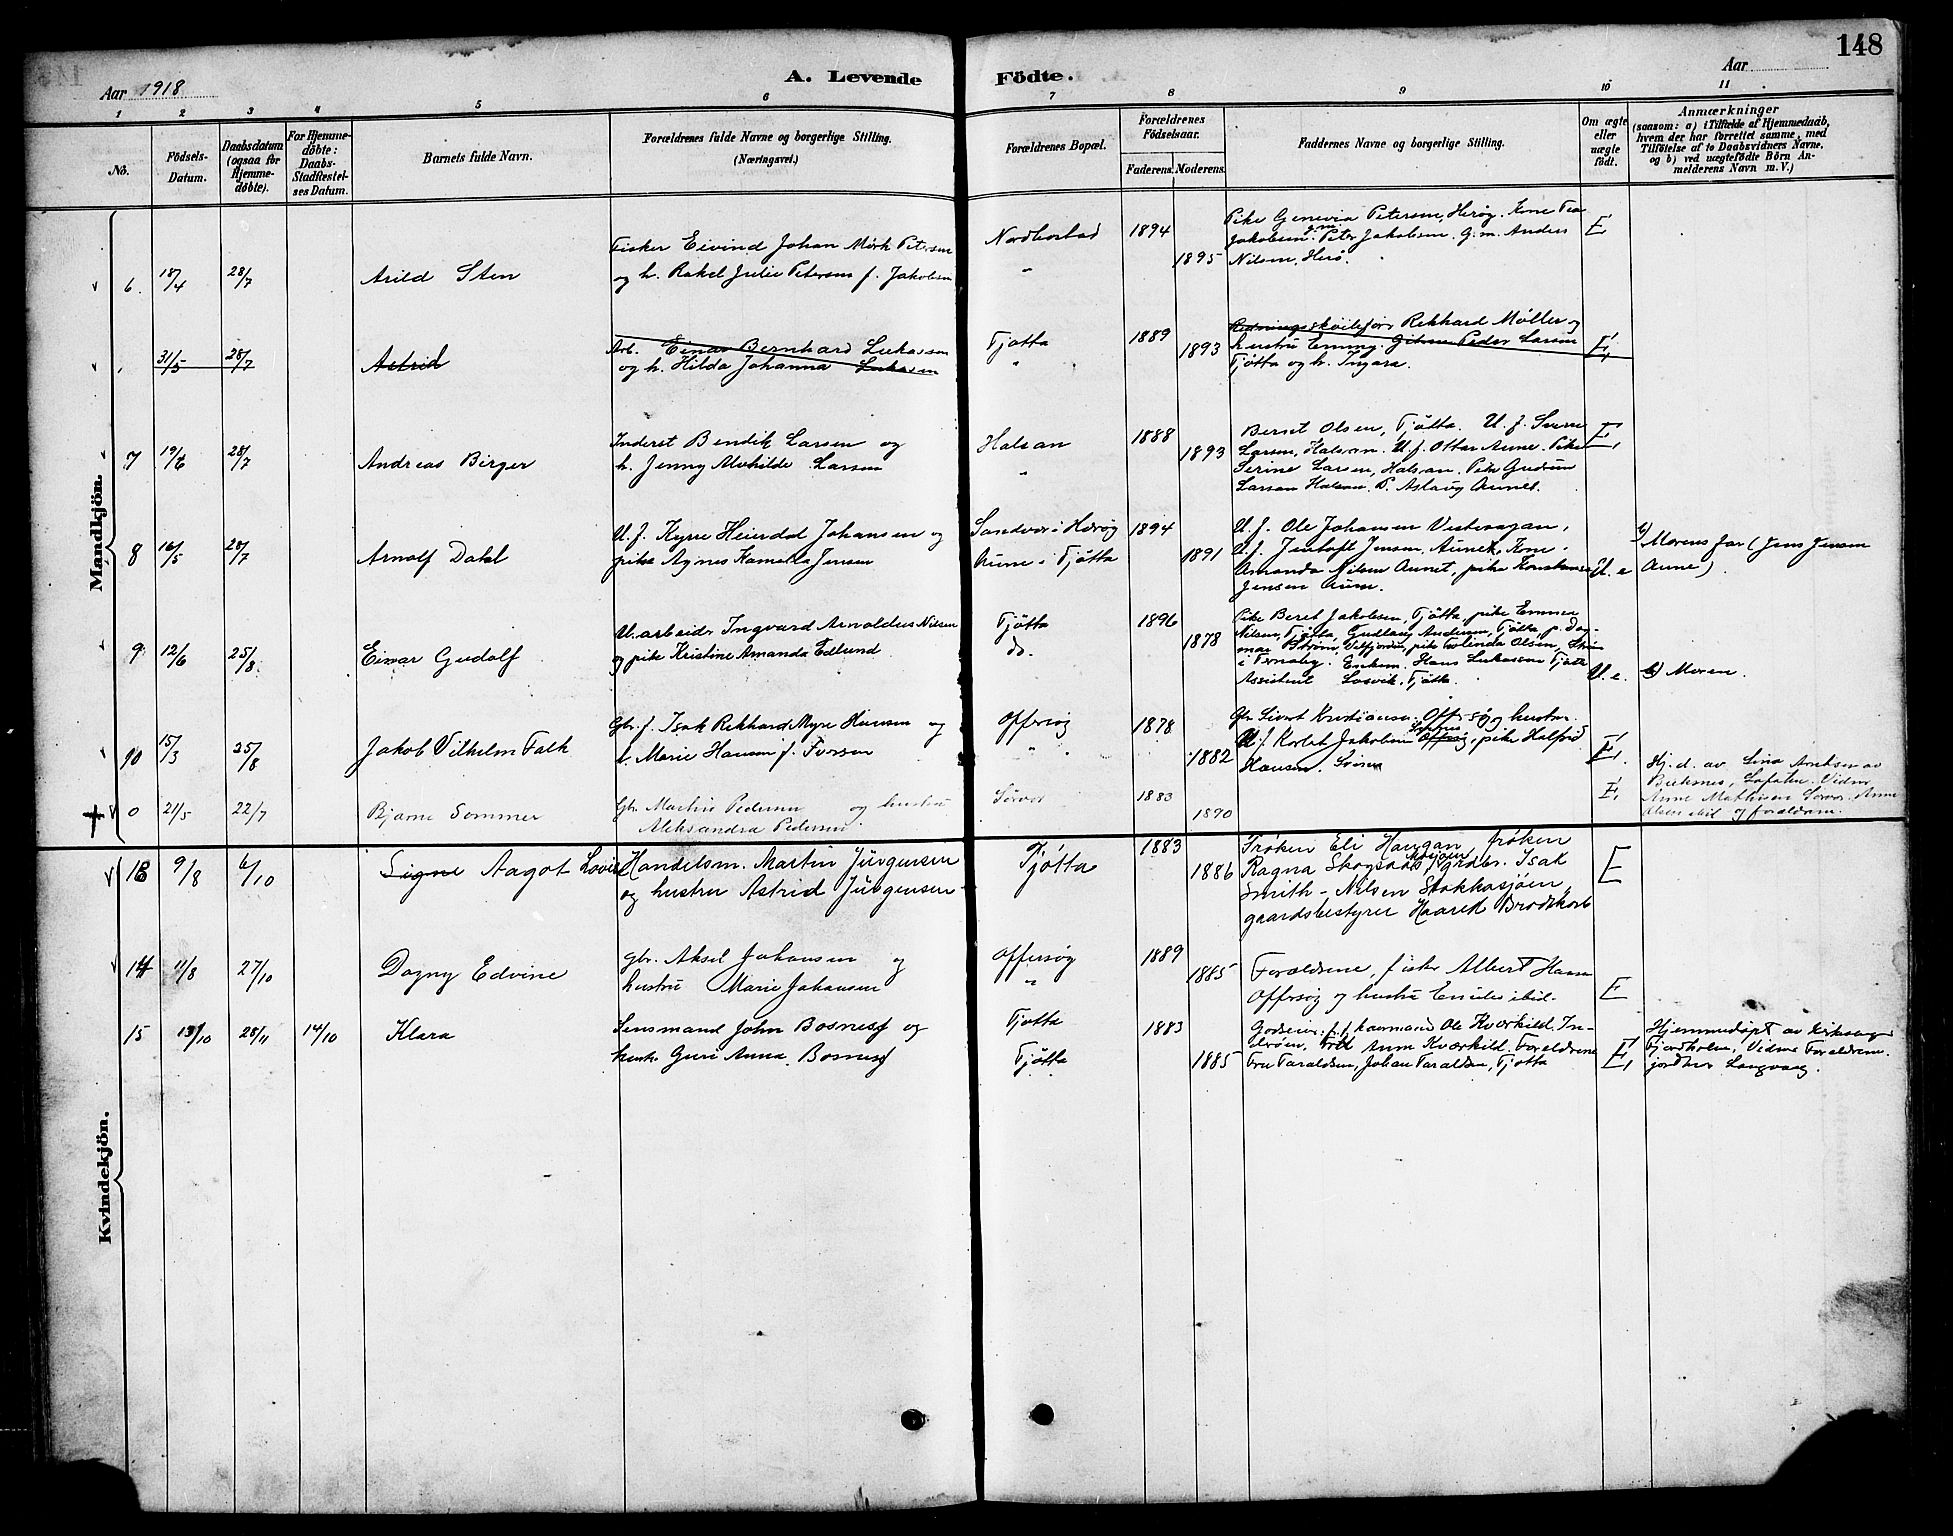 148
Aar 1918
A. Levende
Födte.
Aar
1 2 3 4 5 6 7 8 9 10 11
No.
Födsels-
Datum.
Daabsdatum
(ogsaa for
Hjemme-
döbte).
For Hjemme-
döbte:
Daabs-
Stadfæstel-
ses Datum.
Barnets fulde Navn.
Forældrenes fulde Navne og borgerlige Stilling.
(Næringsvei.)
Forældrenes Bopæl.
Forældrenes
Födselsaar.
Faderens.
Moderens.
Faddernes Navne og borgerlige Stilling.
Om ægte
eller
uægte
födt.
Anmærkninger
(saasom: a) i Tilfælde af Hjemmedaab,
hvem der har forrettet samme, med
Tilföielse af to Daabsvidners Navne,
og b) ved uægtefödte Börn An-
melderens Navn m. V.)
Mandkjön.
6. 18/4 28/7 Arild Sten
Fisker Eivind Johan Mörk Petersen
og h. Rakel Julie Petersen f. Jakobsen
Nordhorstad
"
1894
1895
Pike Genevia Petersen, Herøy. Kone Tea
Jakobsen. gm. Peter Jakobsen. G.m. Anders
Nilsen, Herø.
E
31/5 28/7 Astrid
Arb. Einar Bernhard Lukassen
og h. Hilda Johanna Lukassen
Tjøtta
"
1889
1893
Redningsskøitefører Rekhard Møller og
hustru Emmy. Peder Larsen
Tjøtta og h. Ingara.
E,
7 19/6 28/7 Andreas Birger
Inderst Bendik Larsen og
h. Jenny Alvhilde Larsen
Halsan
"
1888
1893
Berset Olsen, Tjøtta. U. f. Sverre
Larsen, Halsan. U. f. Ottar Aune. Pike
Serine Larsen, Halsan. Pike Gudrun
Larsen Halsan. P. Aslaug Aunet.
E,
8 16/5 28/7 Arnolf Dahl
U. f. Kyrre Heierdal Johansen og
pike Agnes Kamilla Jensen
Sandvær i Herøy
Aune i Tjøtta
1894
1891
U. f. Ole Johansen Vestvaagan,
U. f. Jentoft Jensen, Aunet, Kone
Amanda Nilsen Aunet, pike Konstanse
Jensen Aune.
U. e
b) Morens far (Jens Jensen
Aune).
9 12/6 25/8 Einar Gudolf
U. arbeider Ingvard Arnoldus Nilsen
og pike Kristine Amanda Edlund
Tjøtta
do.
1896
1878
Pike Beret Jakobsen, Tjøtta, pike Emma
Nilsen, Tjøtta, Gudlaug Andersen, Tjøtta, p. Dag-
mar Strøm, Velfjorden, pike Olsen,
Enkem. Hans Lukassen Tjøtta
Assistent Losvik, Tjøtta.
U. e.
b) Moren.
10 15/3 25/8 Jakob Vilhelm Falk
Gbr. f. Isak Rekhard Myre Hansen og
h. Marie Hansen f. Iversen
Offersøy
" "
1878
1882
Gbr. Sivert Kristiansen. Offersøy og hustru.
U. f. Korlet Jakobsen Offersøy, pike Halfrid
Hansen.
E.
+ 0 21/5 22/7 Bjarne Sommer
Gbr. Martin Pedersen og hustru
Aleksandra Pedersen
Sørvær
1883
1890
E,
Hj. d. av Lina Arntsen av
Buksnes, Lofoten. Vidner
Anne Mathisen Sørvær. Anne
Olsen ibid og forældrene.
Kvindekjön.
13 9/8 6/10 Signe Aagot Lovise
Handelsm. Martin Jürgensen
og hustru Astrid Jürgensen
Tjøtta
1883
1886
Frøken Eli Haugan frøken
Ragna Skogsaas, grdbr. Isak
Smith-Nilsen Stokkasjøen,
gaardsbestyrer Haarek Brodtkorb
E
14 11/8 27/10 Dagny Edvine
gbr. Aksel Johansen og
hustru Marie Johansen
Offersøy
"
1889
1885
Forældrene, fisker Albert Hansen
Offersøy og hustru Emilie ibid.
E
15 13/10 28/11 14/10 Klara
Lensmand John Bosnes og
hustr. Guri Anna Bosnes
Tjøtta
Tjøtta
1883
1885
Godseier f. f. kaarmand Ole Kvækild. In-
derøen, Anne Kværkild. Forældrene
Fru Taraldsen, Johan Taraldsen, Tjøtta
E,
Hjemmedøpt av kirkesanger
Fjordholm, Vidner Forældrene.
jordmor Langvaag.